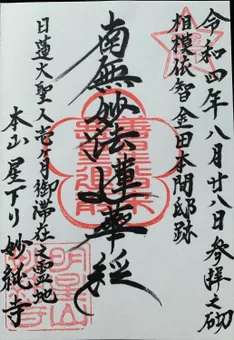 令和四年八月廿八日参拝之砌
相模依智金田本間邸跡
南無妙法蓮華経
日蓮大聖人壱ヶ月御滞在之霊地
本山 星下り 妙純寺
明星山